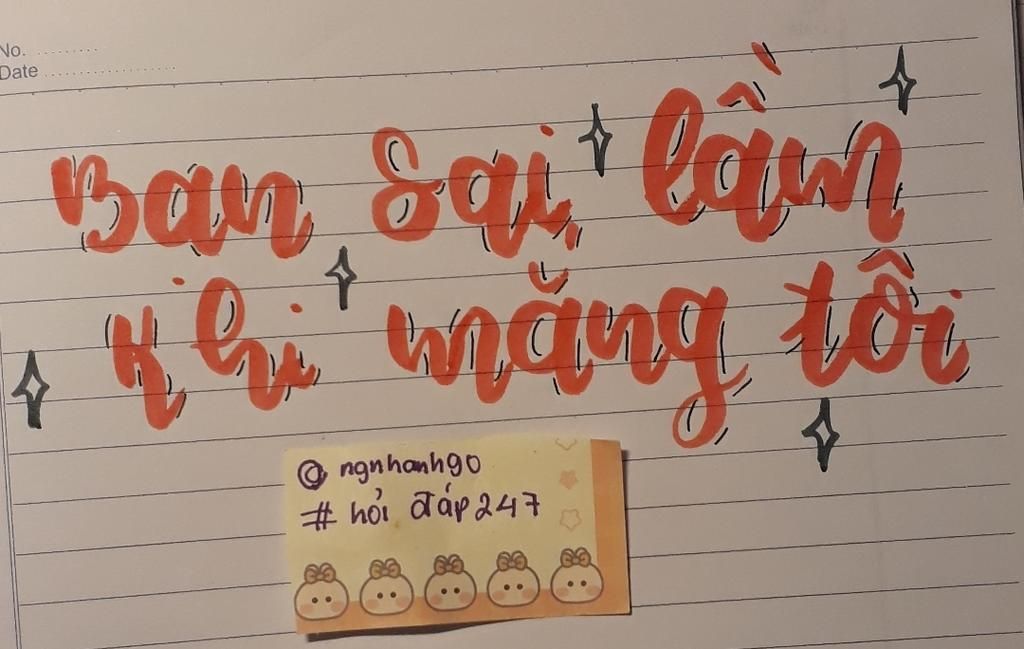 No. ..........
Date ..................
Ban sai lầm
Khi măng tôi
@ ngnhanh90
# hỏi đáp 247